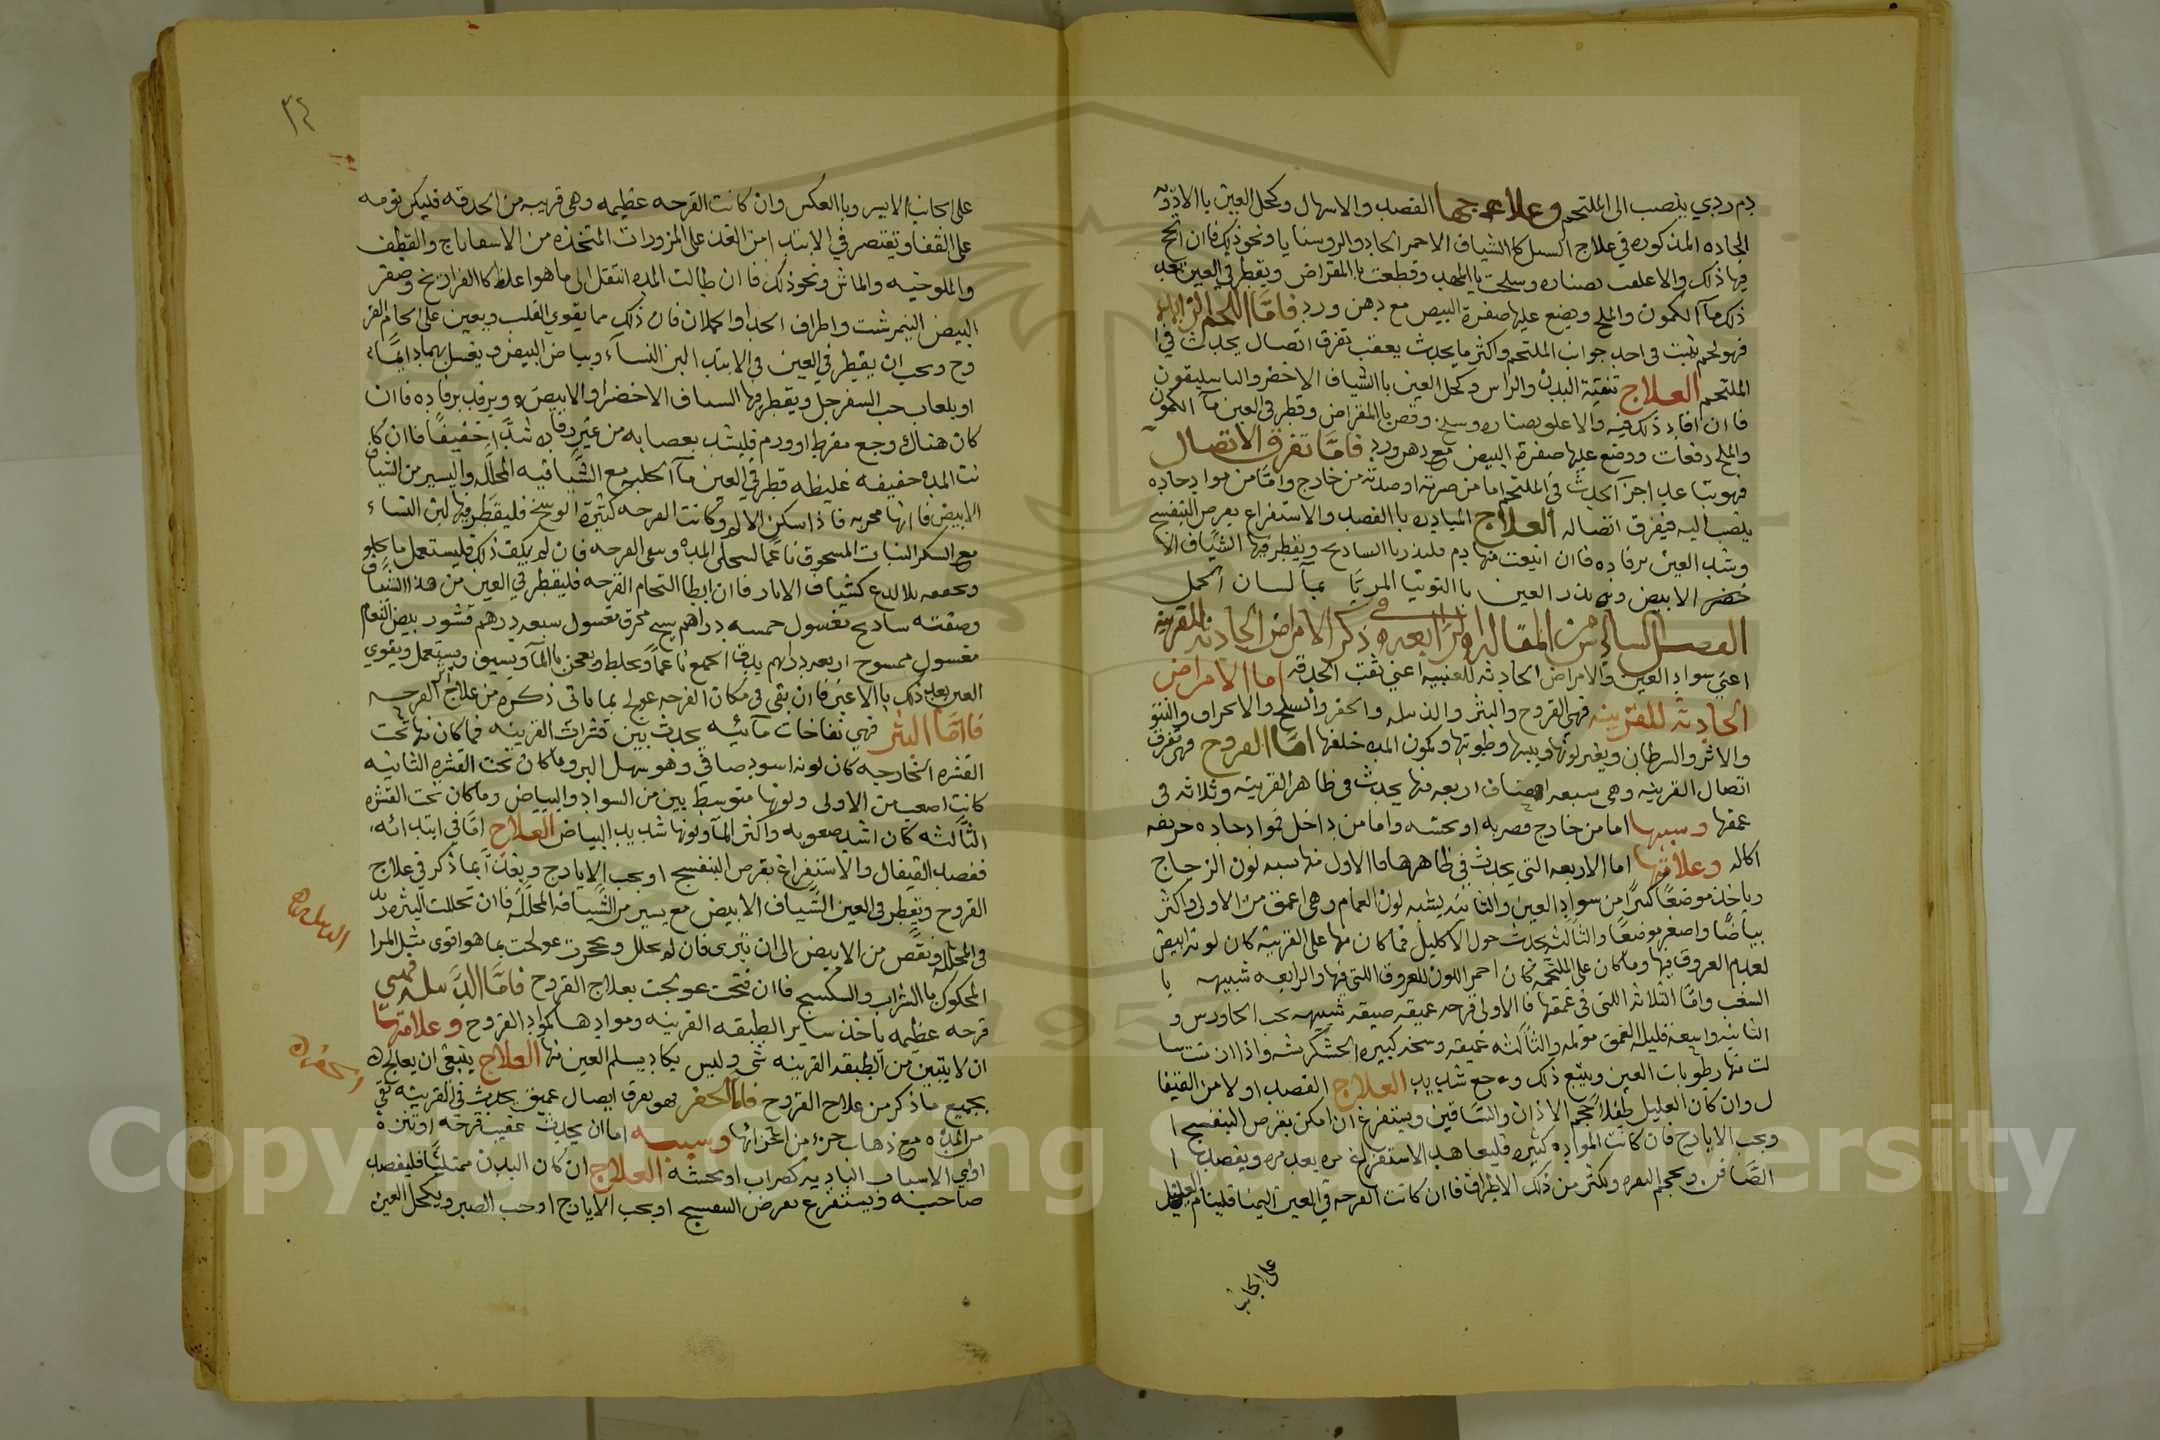 دم ردي ينصب الى الملتحم وعلاجها الفصد والاسهال وكحل العين باالادويه
الحاده المذكوره في علاج السبل كا الشياف الاحمر الحاد والروسنايا ونحو ذلك فاان انجح
فيها ذلك والاعلقت بصناره وسلخت باالمهت وقطعت باالمقراض ويقطر في العين بعد
ذلك مآ الكمون والملح ويضع عليها صفرة البيض مع دهن ورد فامّا اللحم الزايد
فهو لحم ينبت في احد جوانب الملتحم واكثر ما يحدث بعقب تفرق اتصال يحدث في ا
الملتحم العلاج تنقية البدن والراس وكحل العين باالشياف الاخضر والباسليقون
فاان افاد ذلك فيه والا علق بصناره وسلخ وقص باالمقراض وقطر في العين مآ الكمون
والملح دفعات ووضع عليها صفرة البيض مع دهن ورد فامّا تفرق الاتصال
فهو تباعد اجزآ تحدث في الملتحم اما من ضربه او صدمه من خارج وامّا من مواد حاده
ينصب اليه فيفرق اتصاله العلاج المبادره باالفصد والاستفراغ بقرص البنفسج
وشد العين برفاده فاان انبعث منها دم فليذر باالسادنج ويقطر فيها الشياف الا
خضر الابيض ويذر العين باالتوتيا المربّا بمآ لسان الحمل
الفصل السادس من المقالة الرابعه في ذكر الامراض الحادثه للقرنيه
اعني سواد العين والامراض الحادثه للعنبيه اعني ثقب الحدقه اما الامراض
الحادثه للقرنيه فهي القروح والبثر والدبيله والحفر والسلخ والانحراف والنتو
والاثر والسرطان وتغير لونها ويبسها ورطوبتها وكمون المده خلفها امّا القروح فهي تفرق
اتصال القرنيه وهي سبعه اصناف اربعه منها يحدث في ظاهر القرنيه وثلاثه في
عمقها وسببها اما من خارج فضربه او نخسه واما من داخل فمواد حاده حريفه
اكاله وعلامتها اما الاربعه التي يحدث في ظاهرها فا الاول منها شبه لون الزجاج
وياخذ موضعًا كبيرًا من سواد العين والثانيه يشبه لون الغمام وهي اعمق من الاولى واكثر
بياضًا واصغر موضعًا والثالثه يحدث حول الاكليل فما كان منها على القرنيه كان لونه ابيض
لعدم العروق فيها وما كان على الملتحمه كان احمر اللون للعروق اللتي فيها والرابعه شبيهه با
الشغب وامّا الثلاثه اللتي في عمقها فا الاولى قرحه عميقه ضيقه شبيهه بحب الجاورس و
الثانيه واسعه قليله العمق موله والثالثه عميقه وسخه كبيره الخشكريشه واذا ان
لت منها رطوبات العين ويتبع ذلك وجع شديد العلاج الفصد اولا من القيفا
ل وان كان العليل طفلا حجم الاذان والساقين ويستفرغ ان امكن بقرص البنفسج ا
وبحب الايارج فان كانت المواد كثيره فليعاهد الاستفراغ مره بعد مره ويفصد ا
الصّافن وحجم النقره ويكثر من ذلك الاطراف فاان كانت القرحه في العين اليمنا فلينام العليل
على الجانب
٣٤
على الجانب الايسر وباالعكس وان كانت القرحه عظيمه وهي قريبه من الحدقه فليكن نومه
على القفا ويقتصر في الابتدا من الغذا على المزورات المتخذه من الاسفاناج والقطف
والملوخيه والماش ونحو ذلك فاان طالت المده انتقل الى ما هو اغلظ كا الفراريج وصفر
البيض النيمرشت واطراف الجدا والحملان فان ذلك مما يقوي القلب ويعين على الحام القر
وح ويجب ان يقطر في العين في الابتدا لبن النسآء وبياض البيض ويغسل بهما دايمًا
او بلعاب حب السفرجل ويقطر فيها الشياف الاخضر او الابيض ويرفد برفاده فاان
كان هناك وجع مفرط او ورم فليشد بعصابه من غير رفاده شدًا خفيفًا فاان كا
نت المده خفيفه غليظه قطر في العين مآ الحلبه مع الشيافيه المحلله واليسير من الشياف
الابيض فاانها مجربه فاذا سكن الالم وكانت القرحه كثيرة الوسخ فليقطر فيها لبن النساء
مع السكر النبات المسحوق ناعمًا لتحلل المده وتنقى القرحه فان لم يكف ذلك فليستعمل ما يجلو
ويجفف بلا لدع كشياف الابار فاان ابطا التحام القرحه فليقطر في العين من هذا الشياف
وصفته سادنج مغسول خمسه دراهم بسد محرق مغسول سبعه دراهم قشور بيض النعام
مغسول ممسوح اربعه دراهم يدق الجميع ناعمًا ويخلط ويعجن باالمآ ويشيف ويستعمل ويقوي
العين بعد ذلك باالاغبر فاان بقي في مكان القرحه اثر عولج بما ياتي ذكره من علاج القرحه
فاامّا البثر فهي نفاخات مآئيه يحدث بين قشرات القرنيه فما كان منها تحت
القشره الخارجه كان لونه اسود صافي وهو سهل البرو وما كان تحت القشره الثانيه
كانت اصعب من الاولى ولونها متوسط بين من السواد والبياض وما كان تحت القشره
الثالثه كان اشد صعوبه واكثر المآ ولونها شديد البياض العلاج امّا في ابتدائه
ففصد القيفال والاستفراغ بقرص البنفسج او بحب الايارج ويغذآ بما ذكر في علاج
القروح ويقطر في العين الشياف الابيض مع يسير من الشيافه المحلله فاان تحللت البثره زيد
في المحلله ونقص من الابيض الى ان تبرى فان لم تحلل وتحجرت عولجت بما هو اقوى مثل المرا
المحكوك باالشراب والسكبينج فاان فتحت عولجت بعلاج القروح فامّا الدّبيله فهي
قرحه عظيمه ياخذ ساير الطبقه القرنيه وموادها كمواد القروح وعلامتها
ان لا يتبين من الطبقه القرنيه شي وليس يكاد يسلم العين منها العلاج ينبغي ان يعالج
بجميع ما ذكر من علاج القروح فامّا الحفر فهو تفرق اتصال عميق يحدث في القرنيه نقي
من المده مع ذهاب جزء من اجزائها وسببه اما ان يحدث عقيب قرحه او بثره
او اي الاسباب الباديه كضراب او نخسه العلاج ان كان البدن ممتليًا فليفصد
صاحبه ويستفرغ بقرص البنفسج او بحب الايارج او حب الصبر ويكحل العين
الدبيله
الحفر
Copyright © King Saud University
1957